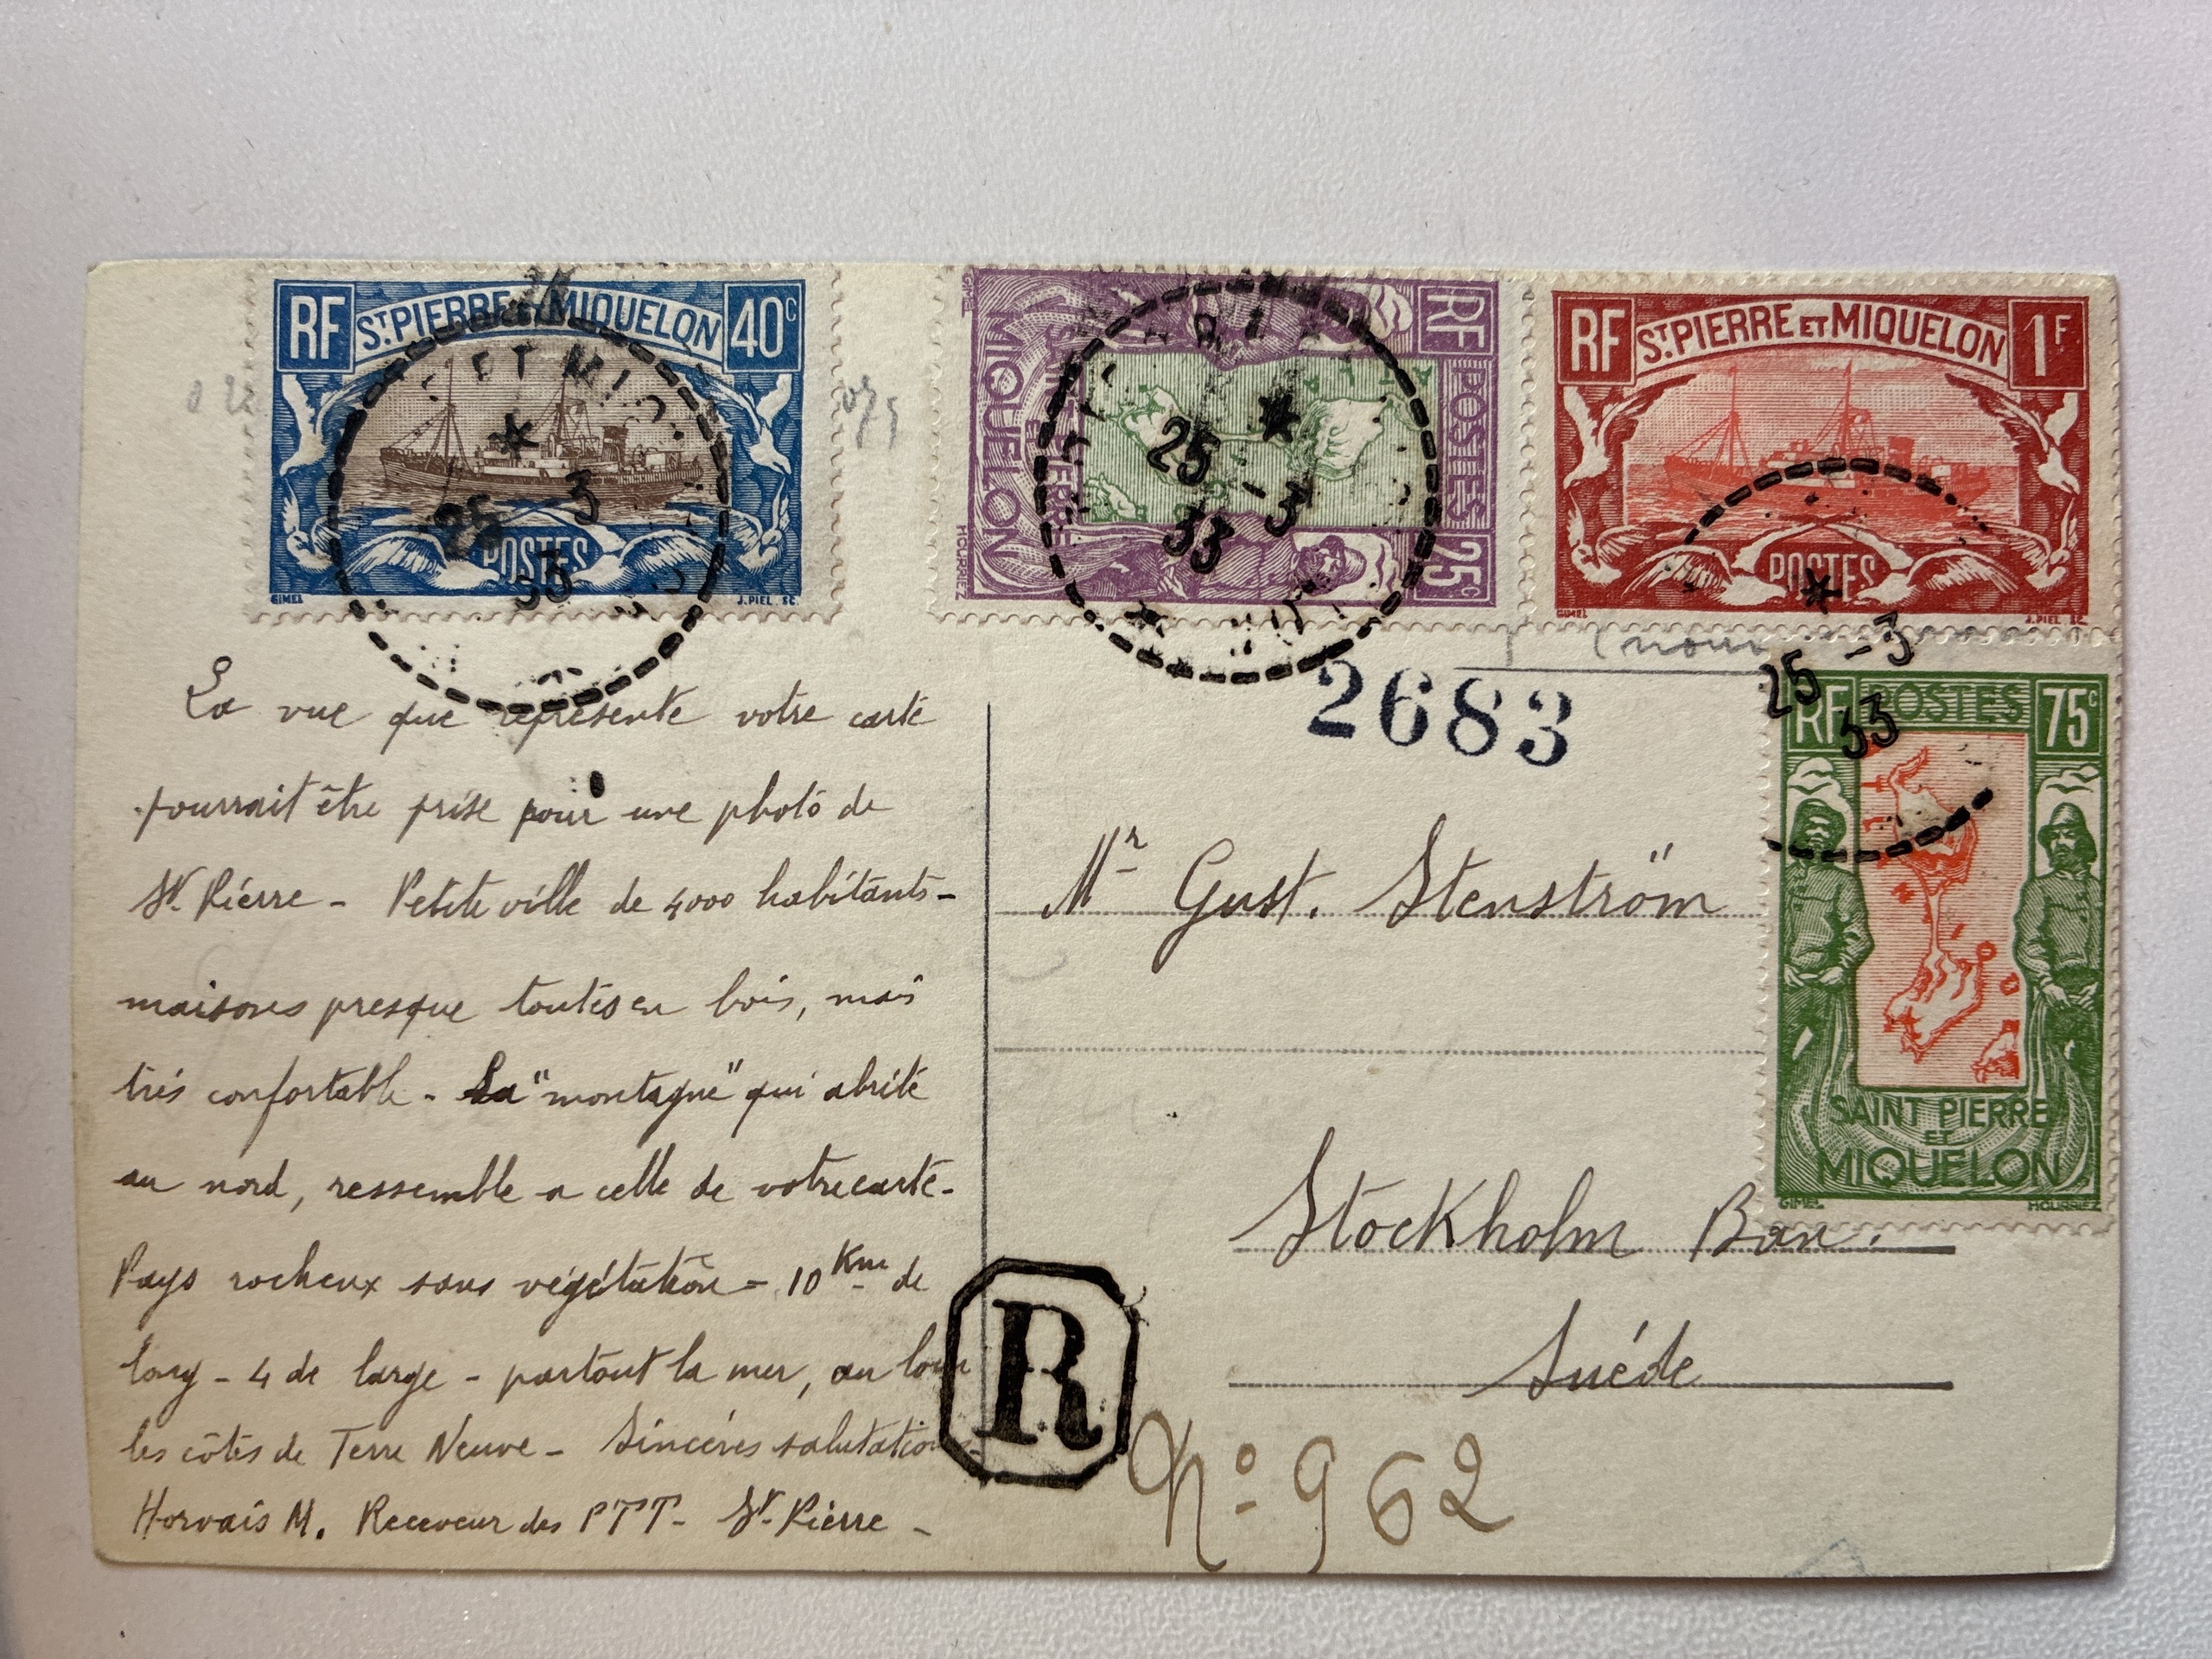 RF ST. PIERRE ET MIQUELON 40c
POSTES
GIMEL J. PIEL SC.
25 3
33
RF POSTES 25c
SAINT PIERRE
ET
MIQUELON
GIMEL HOURRIEZ
25 -3
33
RF ST. PIERRE ET MIQUELON 1F
POSTES
GIMEL J. PIEL SC.
25 -3
33
RF POSTES 75c
SAINT PIERRE
ET
MIQUELON
GIMEL HOURRIEZ
2683
La vue que représente votre carte
pourrait être prise pour une photo de
St. Pierre - Petite ville de 4000 habitants -
maisons presque toutes en bois, mais
très confortable - La "montagne" qui abrite
au nord, ressemble a celle de votre carte -
Pays rocheux sans végétation - 10 Km de
long - 4 de large - partout la mer, au loin
les côtes de Terre Neuve - Sincères salutations -
Horvais M. Receveur des PTT - St. Pierre -
Mr Gust. Stenström
Stockholm Ban.
Suéde
R
No 962